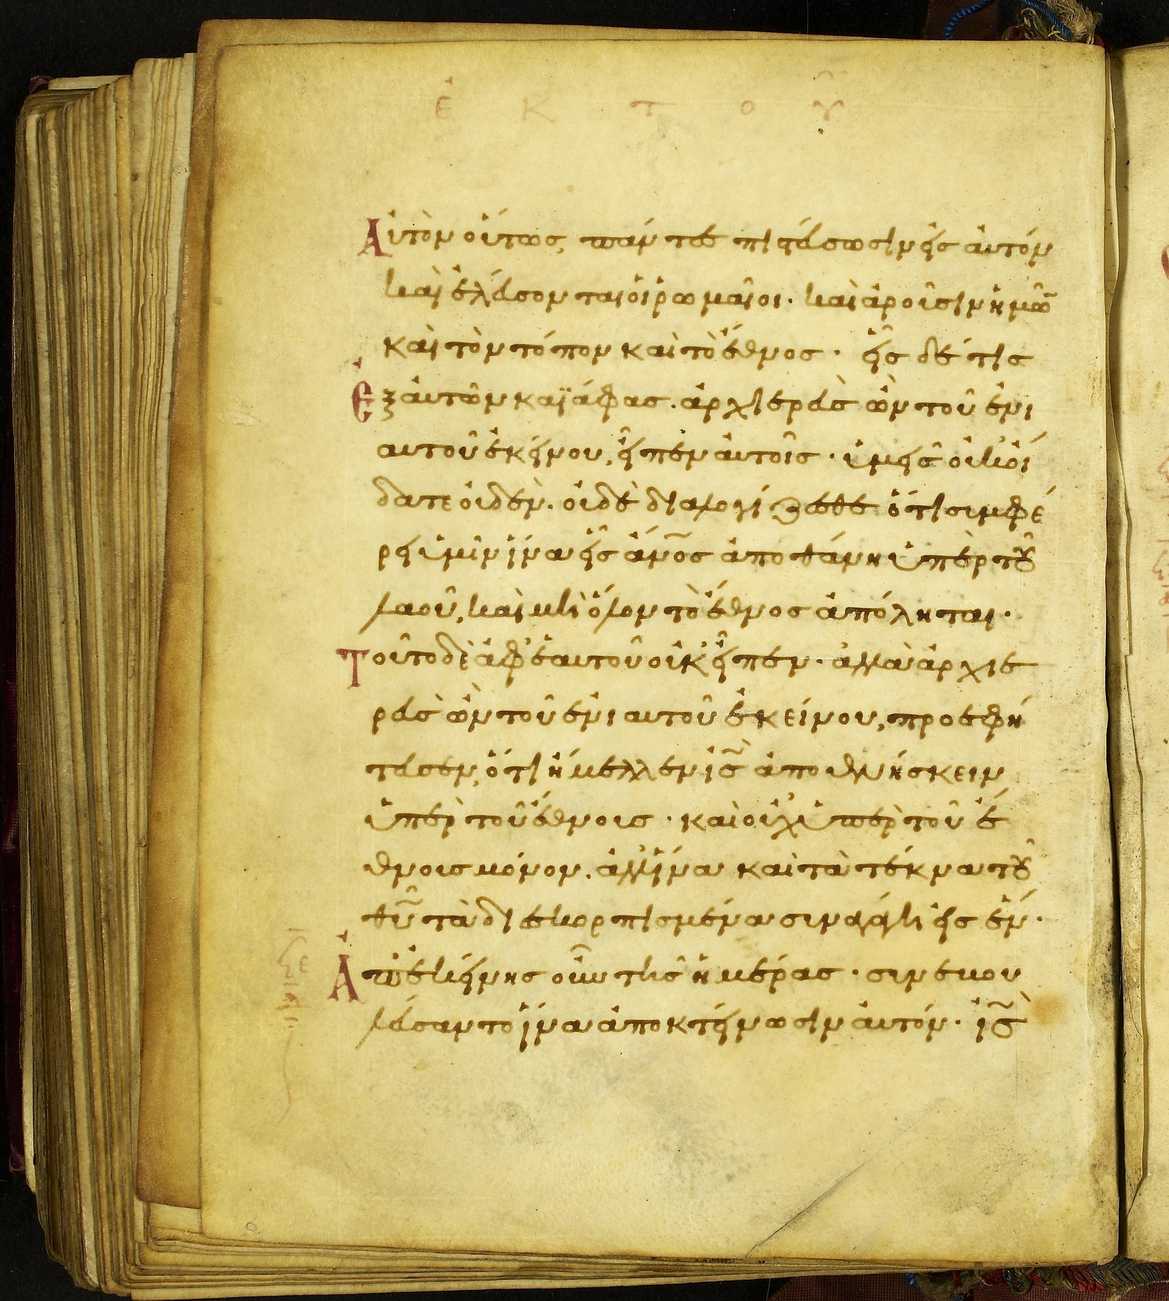 ἐκτοῦ
Αὐτὸν οὕτως, πάντες πιστεύσωσιν εἰς αὐτόν
καὶ ἐλεύσονται οἱ ῥωμαῖοι· καὶ ἀροῦσιν ἡμῶν
καὶ τὸν τόπον καὶ τὸ ἔθνος· εἷς δέ τις
Ἐξ αὐτῶν καϊάφας. ἀρχιερεὺς ὢν τοῦ ἐνι
αυτοῦ ἐκείνου, εἶπεν αὐτοῖς· ὑμεῖς οὐκ οἴ
δατε οὐδέν. οὐδὲ διαλογίζεσθε ὅτι συμφέ
ρει ὑμῖν ἵνα εἷς ἄν̅ος ἀποθάνη ὑπὲρ τοῦ
λαοῦ, καὶ μὴ ὅλον τὸ ἔθνος ἀπόληται·
Τοῦτο δὲ ἀφ' ἑαυτοῦ οὐκ εἶπεν· ἀλλὰ ἀρχιε
ρεὺς ὢν τοῦ ἐνιαυτοῦ ἐκείνου, προεφή
τευσεν, ὅτι ἤμελλεν ἰ̅ς̅ ἀποθνήσκειν
ὑπὲρ τοῦ ἔθνους· καὶ οὐχ ὑπὲρ τοῦ ἔ
θνους μόνον. ἀλλ' ἵνα καὶ τὰ τέκνα τοῦ
θ̅υ̅ τὰ διεσκορπισμένα συναγάγη εἰς ἕν·
Ἀπ' ἐκείνης οὖν τῆς ἡμέρας· συνεβου
λεύσαντο ἵνα ἀποκτείνωσιν αὐτόν· ἰ̅ς̅